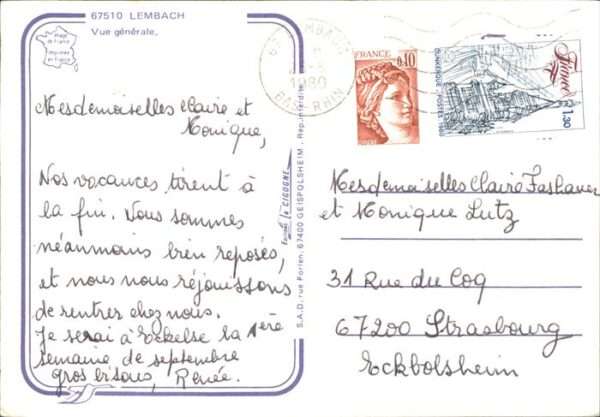 67510 LEMBACH
Vue générale.
image
de France
imprimée
en France
LEMBACH
1980
BAS-RHIN
FRANCE
0,10
France
DUNKERQUE
POSTES
1,30
Mesdemoiselles Claire et
Monique,
Nos vacances tirent à
la fin. Nous sommes
néanmoins bien reposés,
et nous nous réjouissons
de rentrer chez nous.
Je serai à Eckelse la 1ère
semaine de septembre
gros bisous, Renée.
la CIGOGNE
S.A.D., rue Forlen, 67400 GEISPOLSHEIM, Rep. interdite
Mesdemoiselles Claire Fashauer
et Monique Lutz
31 Rue du Coq
67200 Strasbourg
Eckbolsheim